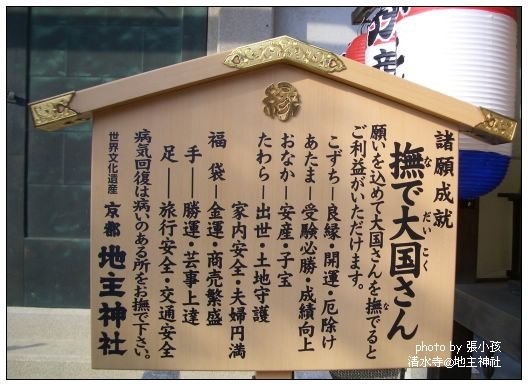 諸願成就
撫で大国さん
な だいこく
願いを込めて大国さんを撫でると
な
ご利益がいただけます。
こずち―良縁・開運・厄除け
あたま―受験必勝・成績向上
おなか―安産・子宝
たわら―出世・土地守護
家内安全・夫婦円満
福袋―金運・商売繁盛
手―勝運・芸事上達
足―旅行安全・交通安全
病気回復は病いのある所をお撫で下さい。
世界文化遺産 京都 地主神社
photo by 張小孩
清水寺@地主神社